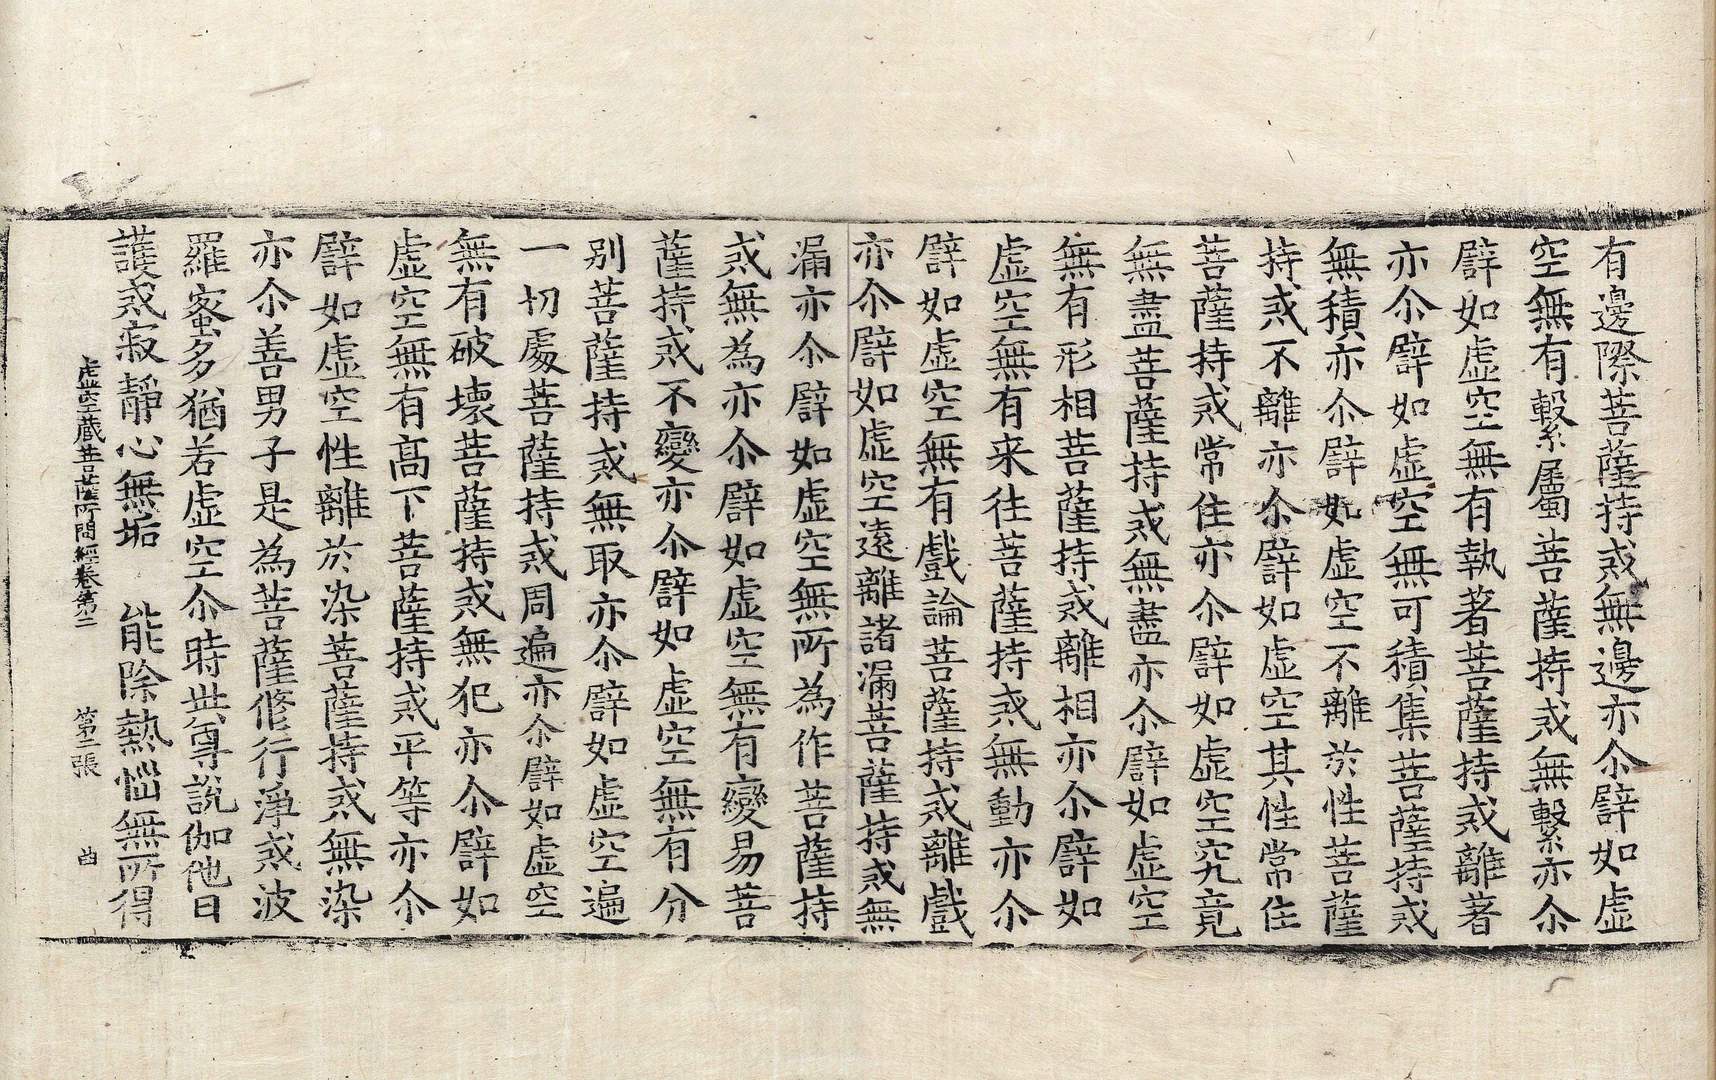 有邊際菩薩持戒無邊亦尒譬如虚
空無有繫屬菩薩持戒無繫亦尒
譬如虚空無有執著菩薩持戒離著
亦尒譬如虚空無可積集菩薩持戒
無積亦尒譬如虚空不離於性菩薩
持戒不離亦尒譬如虚空其性常住
菩薩持戒常住亦尒譬如虚空究竟
無盡菩薩持戒無盡亦尒譬如虚空
無有形相菩薩持戒離相亦尒譬如
虚空無有来往菩薩持戒無動亦尒
譬如虚空無有戲論菩薩持戒離戲
亦尒譬如虚空遠離諸漏菩薩持戒無
漏亦尒譬如虚空無所為作菩薩持
戒無為亦尒譬如虚空無有變易菩
薩持戒不變亦尒譬如虚空無有分
别菩薩持戒無取亦尒譬如虚空遍
一切處菩薩持戒周遍亦尒譬如虚空
無有破壞菩薩持戒無犯亦尒譬如
虚空無有高下菩薩持戒平等亦尒
譬如虚空性離於染菩薩持戒無染
亦尒善男子是為菩薩修行淨戒波
羅蜜多猶若虚空尒時世尊說伽他曰
護戒寂靜心無垢 能除熱惱無所得
虚空藏菩薩所問經卷第二 第二張 曲